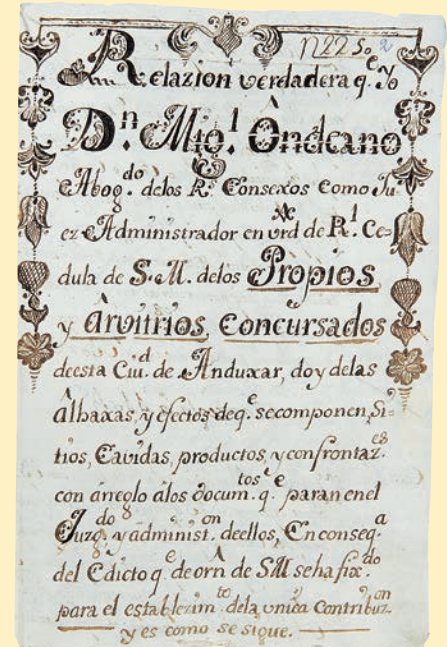 N 225. 2
Relazion verdadera q.e Yo
D.n Mig.l Ondeano
Abog.do de los R.s Consexos Como Ju-
ez Administrador en vrd de R.l Ce-
dula de S. M. de los Propios
y Arvitrios, Concursados
de esta Ciu.d de Anduxar, doy de las
Alhaxas, y efectos de q.e se componen, Si-
tios, Cavidas, productos, y confrontaz.es
con arreglo à los docum.tos q.e paran en el
Juzg.do y administ.on de ellos, En conseq.a
del Edicto q.e de orn de S M se ha fix.do
para el establezim.to de la unica Contribuz.on
y es como se sigue.